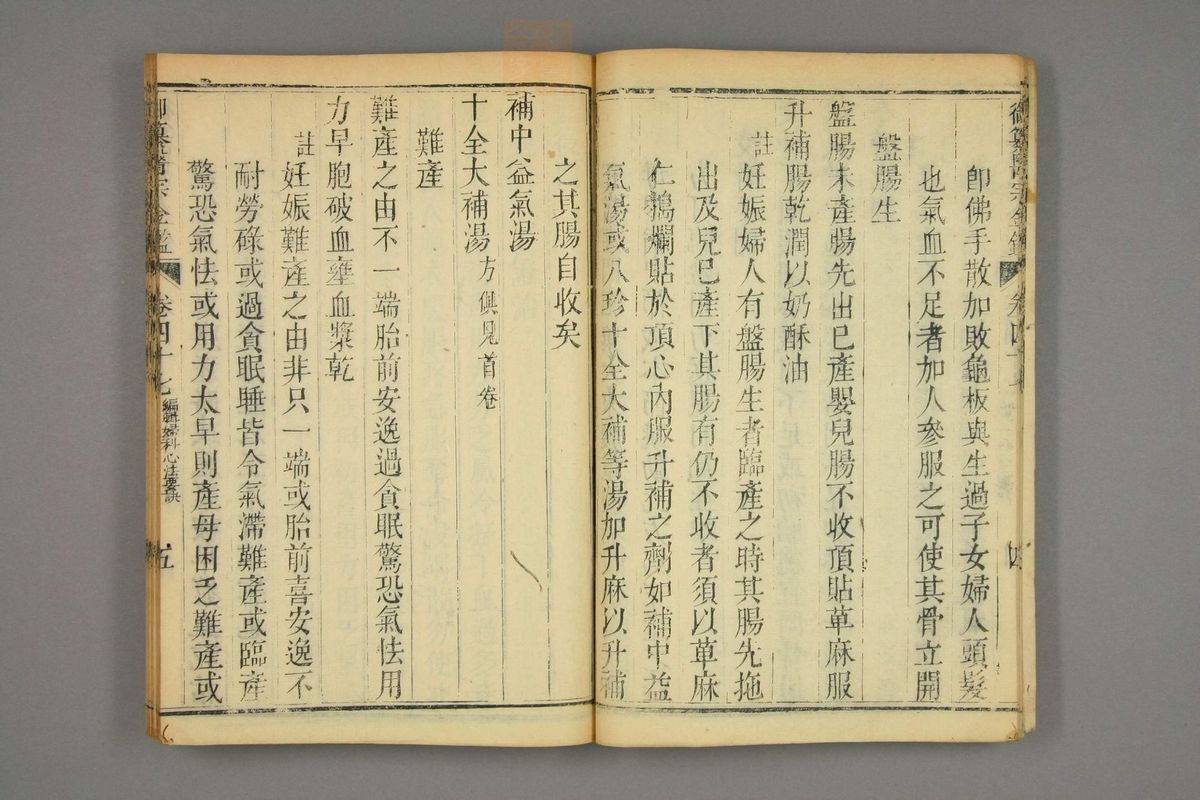 即佛手散加敗龜板與生過子女婦人頭髮
也氣血不足者加人參服之可使其骨立開
盤腸生
盤腸未產腸先出已產嬰兒腸不收頂貼萆麻服
升補腸乾潤以奶酥油
註妊娠婦人有盤腸生者臨產之時其腸先拖
出及兒已產下其腸有仍不收者須以萆麻
仁搗爛貼於頂心內服升補之劑如補中益
氣湯或八珍十全大補等湯加升麻以升補
之其腸自收矣
補中益氣湯
十全大補湯方俱見首卷
難產
難產之由不一端胎前安逸過貪眠驚恐氣怯用
力早胞破血壅血漿乾
註妊娠難產之由非只一端或胎前喜安逸不
耐勞碌或過貪眠睡皆令氣滯難產或臨產
驚恐氣怯或用力太早則產母困乏難產或
御纂醫宗金鑑 卷四十七 編輯婦科心法要訣 五